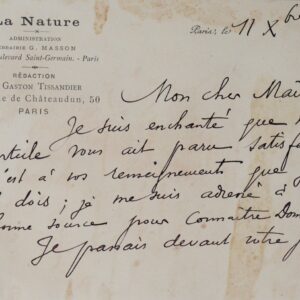 La Nature
ADMINISTRATION
LIBRAIRIE G. MASSON
oulevard Saint-Germain. - Paris
RÉDACTION
GASTON TISSANDIER
e de Châteaudun, 50
PARIS
Paris, le 11 X
Mon cher Maî
Je suis enchanté que
article vous ait paru satisfa
c'est à vos renseignements que
dois ; je me suis adressé à
onne source pour connaître Dom
Je passais devant votre